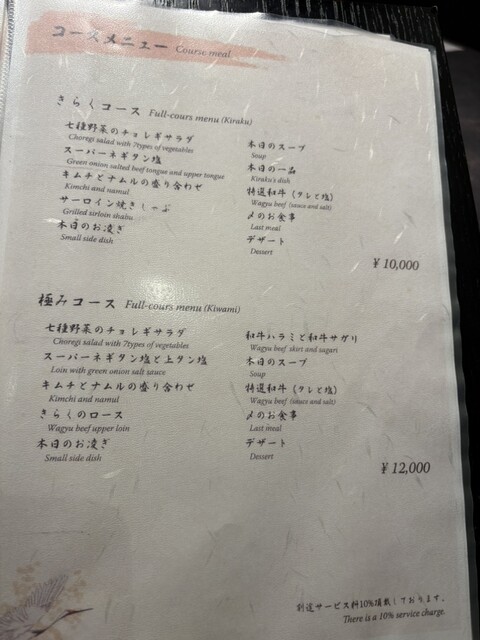 コースメニュー Course meal
きらくコース Full-cours menu (Kiraku)
七種野菜のチョレギサラダ
Choregi salad with 7types of vegetables
スーパーネギタン塩
Green onion salted beef tongue and upper tongue
キムチとナムルの盛り合わせ
Kimchi and namul
サーロイン焼きしゃぶ
Grilled sirloin shabu
本日のお凌ぎ
Small side dish
本日のスープ
Soup
本日の一品
Kiraku's dish
特選和牛（タレと塩）
Wagyu beef (sauce and salt)
〆のお食事
Last meal
デザート
Dessert
¥ 10,000
極みコース Full-cours menu (Kiwami)
七種野菜のチョレギサラダ
Choregi salad with 7types of vegetables
スーパーネギタン塩と上タン塩
Loin with green onion salt sauce
キムチとナムルの盛り合わせ
Kimchi and namul
きらくのロース
Wagyu beef upper loin
本日のお凌ぎ
Small side dish
和牛ハラミと和牛サガリ
Wagyu beef skirt and sagari
本日のスープ
Soup
特選和牛（タレと塩）
Wagyu beef (sauce and salt)
〆のお食事
Last meal
デザート
Dessert
¥ 12,000
別途サービス料10%頂戴しております。
There is a 10% service charge.